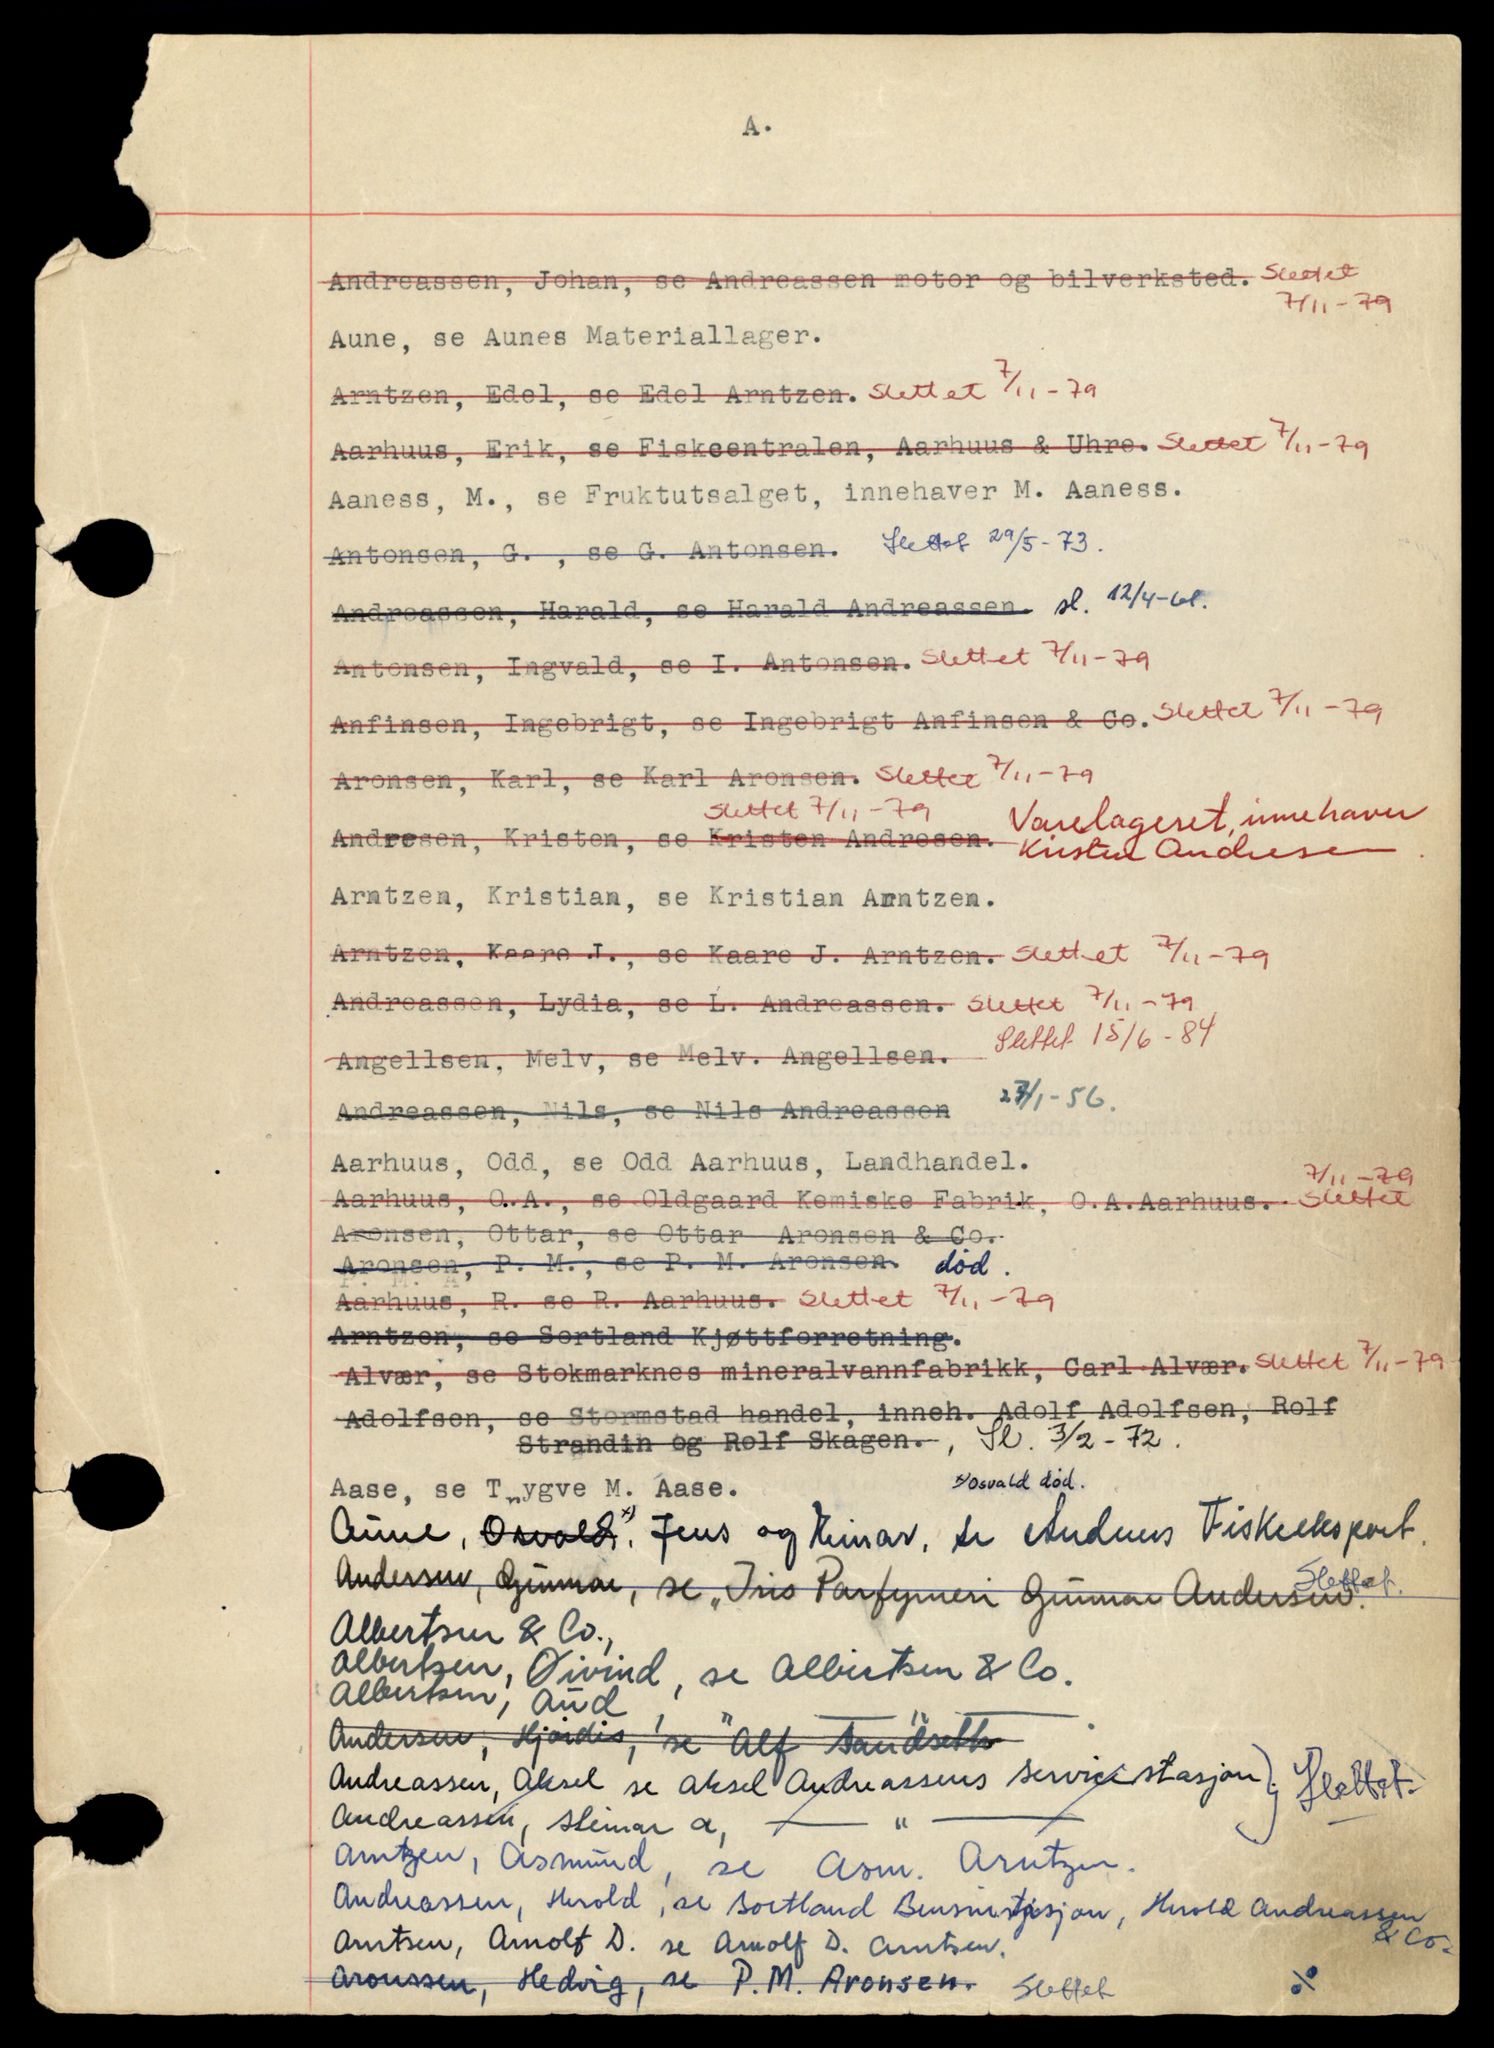 A.
Andreassen, Johan, se Andreassen motor og bilverksted. Slettet
7/11-79
Aune, se Aunes Materiallager.
Arntzen, Edel, se Edel Arntzen. Slettet 7/11-79
Aarhuus, Erik, se Fiskcentralen, Aarhuus & Uhre. Slettet 7/11-79
Aaness, M., se Fruktutsalget, innehaver M. Aaness.
Antonsen, G. , se G. Antonsen. Slettet 29/5-73.
Andreassen, Harald, se Harald Andreassen. sl. 12/4-61.
Antonsen, Ingvald, se I. Antonsen. Slettet 7/11-79
Anfinsen, Ingebrigt, se Ingebrigt Anfinsen & Co. Slettet 7/11-79
Aronsen, Karl, se Karl Aronsen. Slettet 7/11-79
Slettet 7/11-79
Andresen, Kristen, se Kristen Andresen. Varelageret, innehaver
Kristen Andresen
Arntzen, Kristian, se Kristian Arntzen.
Arntzen, Kaare J., se Kaare J. Arntzen. Slettet 7/11-79
Andreassen, Lydia, se L. Andreassen. Slettet 7/11-79
Angellsen, Melv, se Melv. Angellsen. Slettet 15/6-84
Andreassen, Nils, se Nils Andreassen 27/1-56.
Aarhuus, Odd, se Odd Aarhuus, Landhandel.
7/11-79
Aarhuus, O.A., se Oldgaard Kemiske Fabrik, O.A.Aarhuus. Slettet
Aronsen, Ottar, se Ottar Aronsen & Co.
Aronsen, P. M., se P. M. Aronsen. død.
Aarhuus, R. se R. Aarhuus. Slettet 7/11-79
Arntzen, se Sortland Kjøttforretning.
Alvær, se Stokmarknes mineralvannfabrikk, Carl Alvær. Slettet 7/11-79
Adolfsen, se Stormstad handel, inneh. Adolf Adolfsen, Rolf
Strandin og Rolf Skagen. , Sl. 3/2-72.
Aase, se T„ygve M. Aase.
x) Osvald død.
Aune, Osvald x), Jens og Heinar, se Andenes Fiskeeksport.
Andersen, Gunnar, se „Iris Parfymeri Gunnar Andersen. Slettet.
Albertsen & Co.,
Albertsen, Øivind, se Albertsen & Co.
Albertsen, Aud, — " —
Andersen, Hjördis, se Alf Sandseth
Andreassen, Aksel se Aksel Andreassens servicestasjon } Slettet.
Andreassen, Steinar A, — " —
Arntzen, Asmund, se Asm. Arntzen.
Andreassen, Herold, se Sortland Bensinstasjon, Herold Andreassen
& Co.
Arntsen, Arnolf D. se Arnolf D. Arntsen.
Aronssen, Hedvig, se P.M. Aronsen. Slettet %